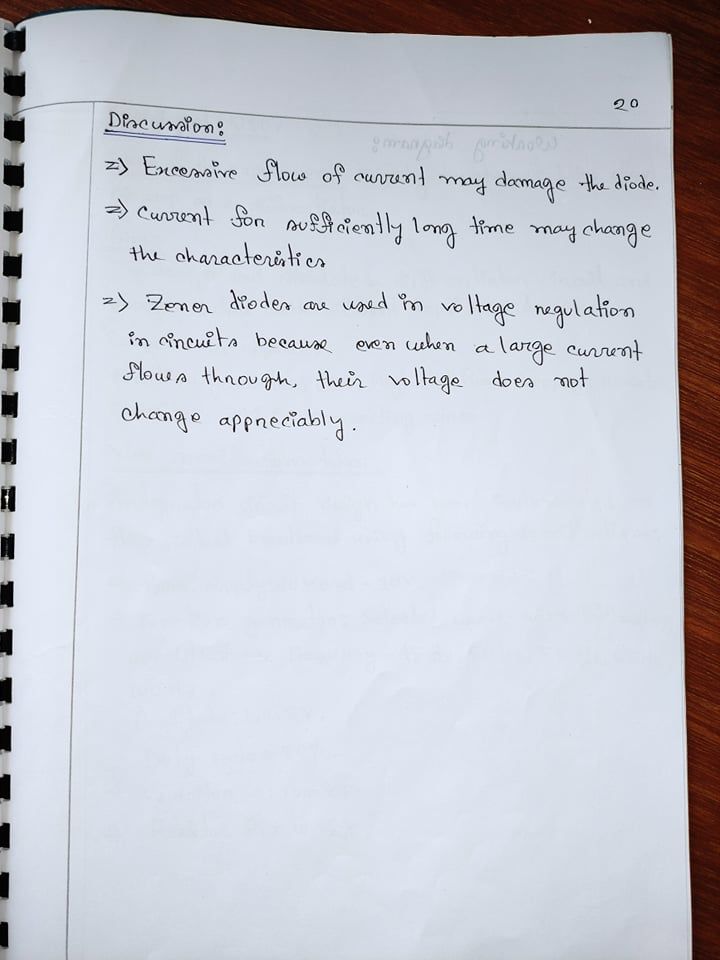 20
Discussion:
=> Excessive flow of current may damage the diode.
=> Current for sufficiently long time may change
the characteristics
=> Zener diodes are used in voltage regulation
in circuits because even when a large current
flows through, their voltage does not
change appreciably.